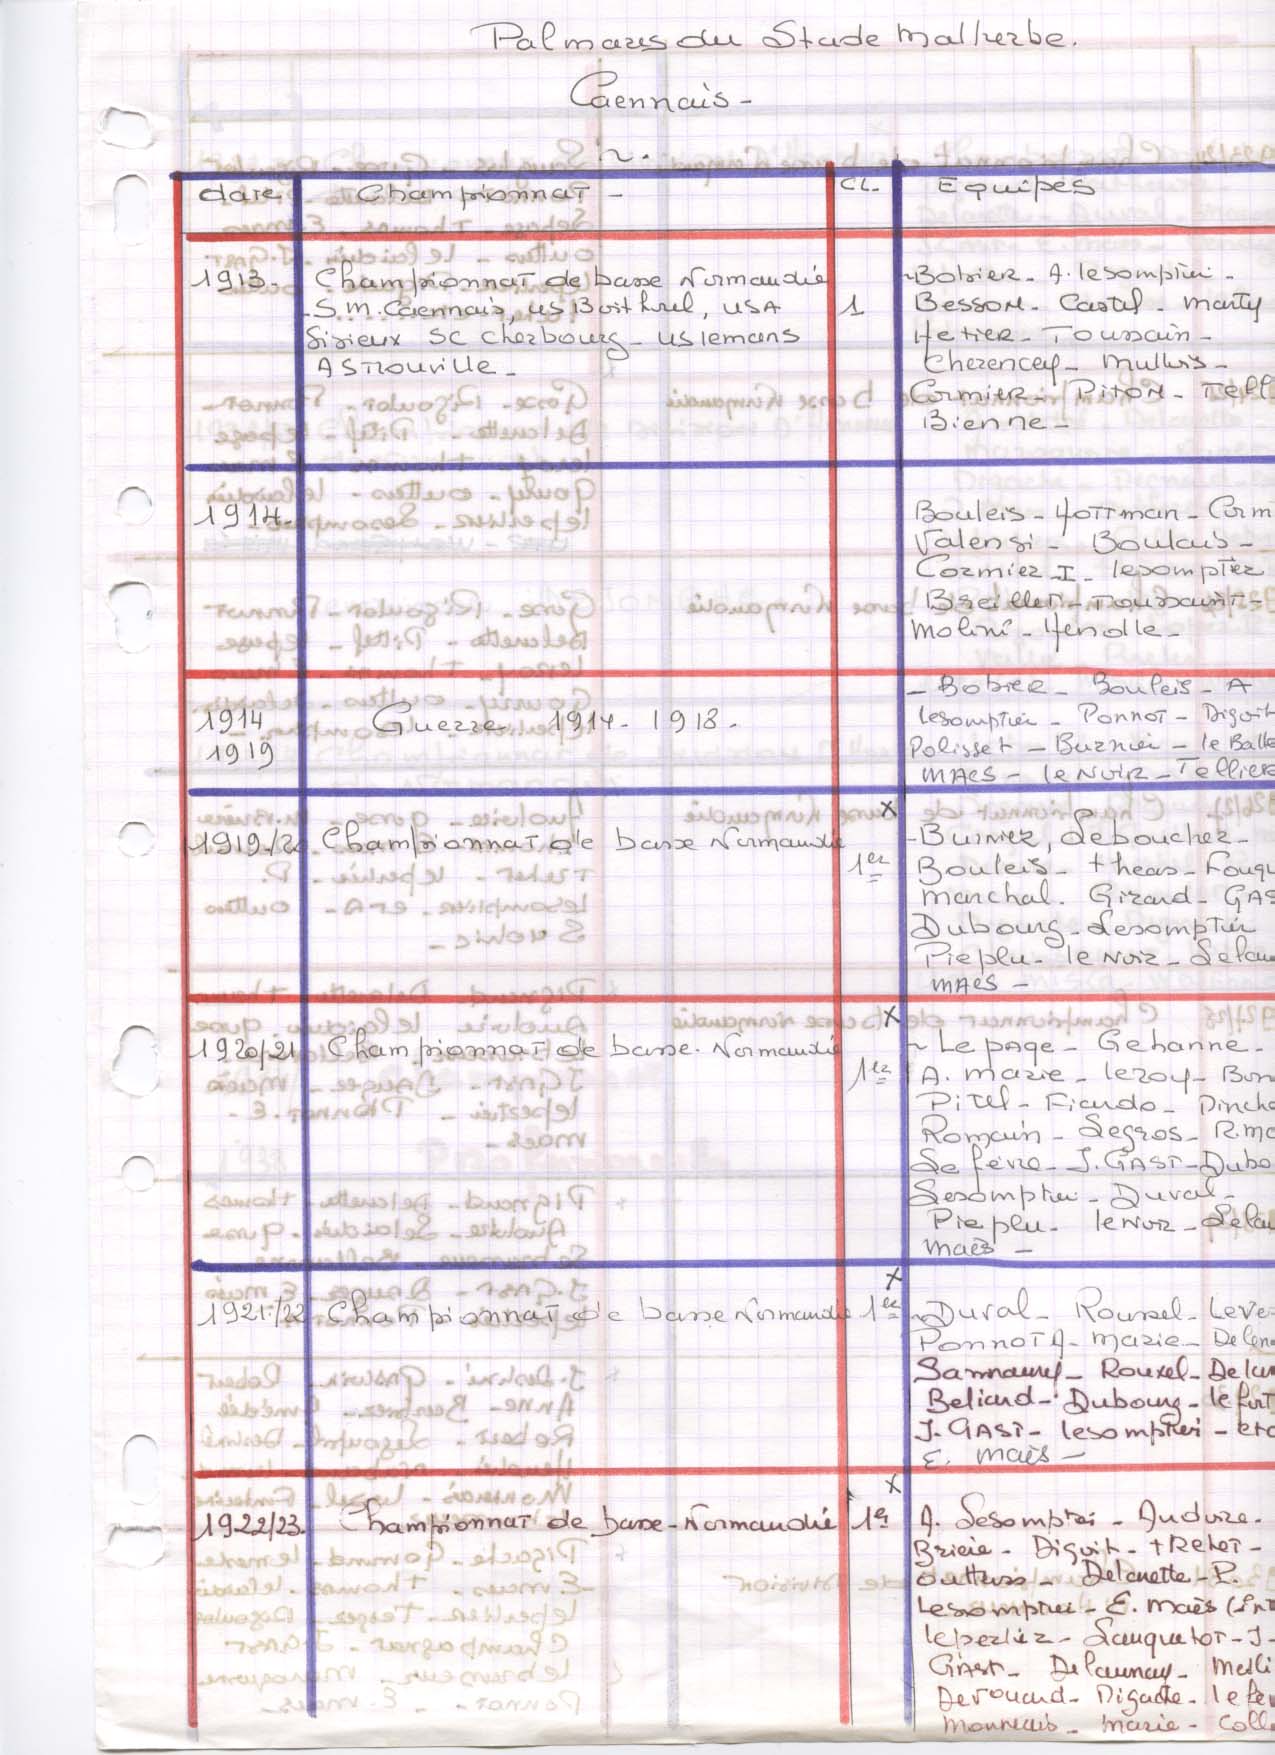 Palmares du Stade Malherbe.
Caennais -
date Championnat - CL. Equipes
1913. Championnat de basse Normandie - Bobier - A. lesomptier -
S.M. Caennais, US USA 1 Besson - Castel - Marty
Lisieux SC Cherbourg - US lemans Hetier - Toussain -
AS Trouville - Cherencey - Mullois -
Cormier - Piton - Tell
Bienne -
1914. Bouleis - Hoffman - Corm
Valensi - Boulais -
Cormier I - lesomptier
Breillet - Toussaint -
Molini - Hendlle -
- Bobier - Bouleis - A
1914 Guerre 1914 - 1918. lesomptier - Ponnot - Diguit
1919 Polisset - Burnier - le Balle
MAES - le Noir - Tellier
X
1919/20 Championnat de basse Normandie - Burnier, Debouchez -
1er Bouleis - theas - Fouqu
Marchal. Girard - GAS
Dubourg - Lesomptier
Pieplu - le Noir - Delau
MAES -
X
1920/21 Championnat de basse. Normandie - Le page - Gehanne -
1er A. Marie - leroy - Bun
Pitel - Ficudo - Pinche
Romain - Legros - R.ma
Le fevre - J. GAST - Dubo
Lesomptier - Duval -
Pieplu - le Noir - Delau
Maës -
X
1921/22 Championnat de basse Normandie 1er - Duval - Rouxel - Leve
Ponnot A - Marie - Delen
Sannaury - Rouxel - Delau
Beliard - Dubourg - le fort
J. GAST - lesomptier - etc
E. Maës -
X
1922/23. Championnat de basse - Normandie 1er A. Lesomptier - Audoire -
Briere - Diguit - trehet -
outters - Delanette - P.
Lesomptier - E. Maës (Int
leperlier - Sauquetot - J -
GAST - Delaunay - Melli
Derouard - Digache - le fe
Monneais - Marie - Coll